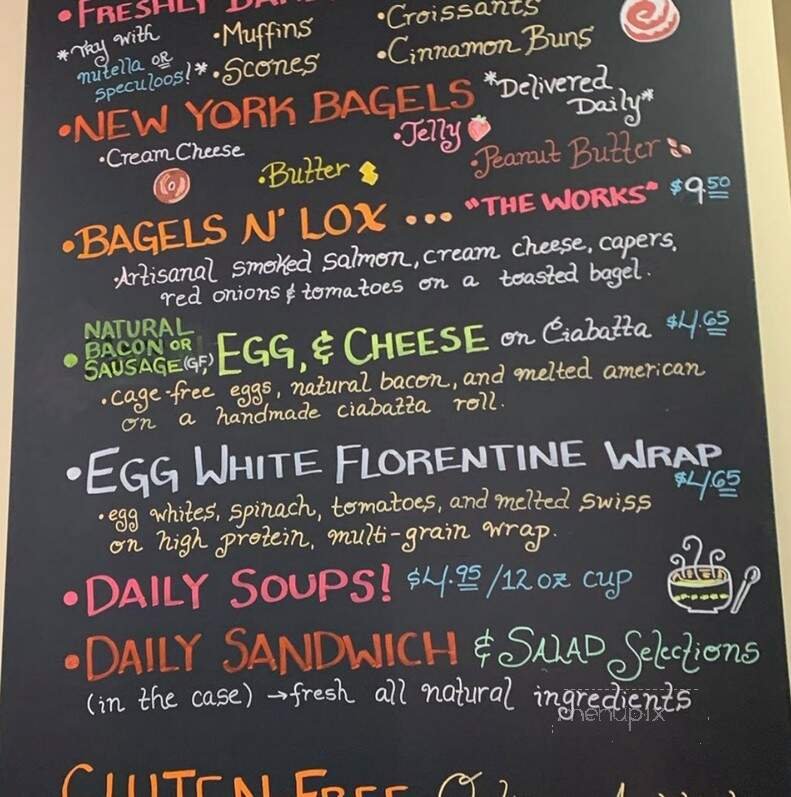 •FRESHLY
*Try with
nutella OR
speculoos!*
•Muffins
•Scones
•Croissants
•Cinnamon Buns
•NEW YORK BAGELS *Delivered
Daily*
•Cream Cheese
•Butter
•Jelly
•Peanut Butter
•BAGELS N' LOX ... "THE WORKS" $9.50
•Artisanal smoked salmon, cream cheese, capers,
red onions & tomatoes on a toasted bagel.
•NATURAL
BACON OR
SAUSAGE (GF) EGG, & CHEESE on Ciabatta $4.65
•cage-free eggs, natural bacon, and melted american
on a handmade ciabatta roll.
•EGG WHITE FLORENTINE WRAP
$4.65
•egg whites, spinach, tomatoes, and melted swiss
on high protein, multi-grain wrap.
•DAILY SOUPS! $4.95/12 oz cup
•DAILY SANDWICH & SALAD Selections
(in the case) →fresh all natural ingredients
menupix
GLUTEN FREE